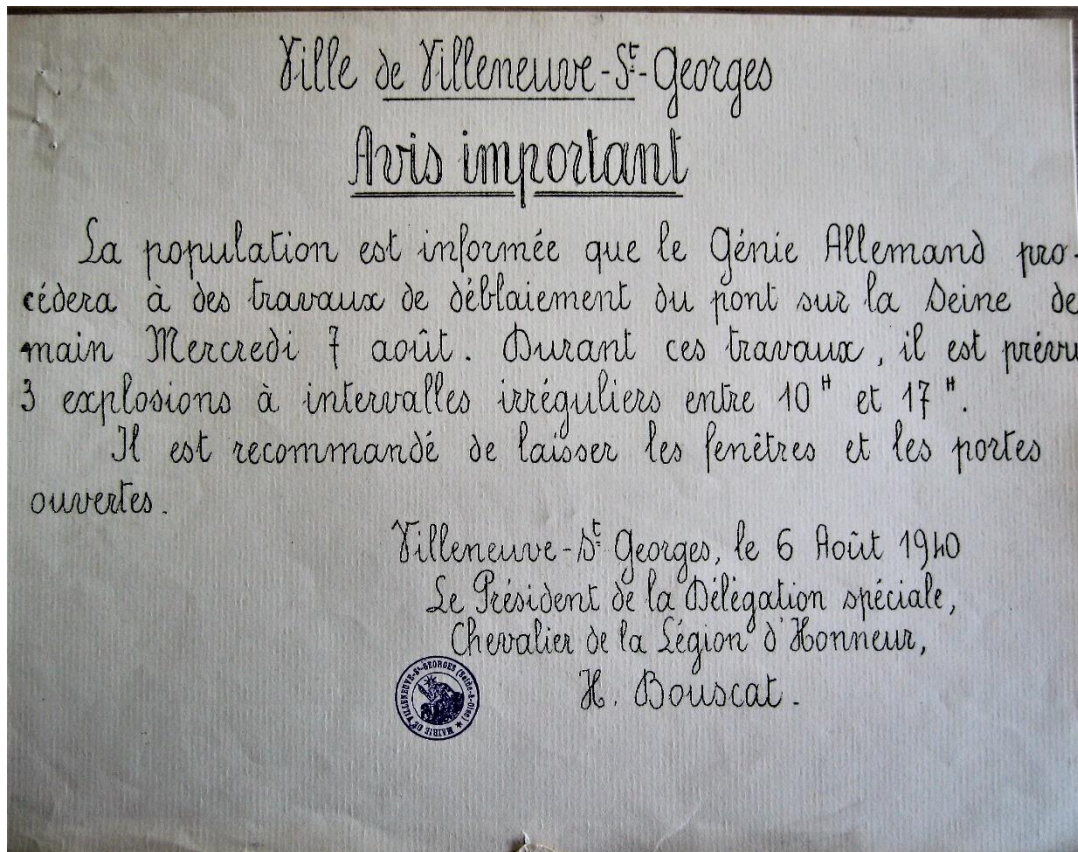 Ville de Villeneuve-St-Georges
Avis important
La population est informée que le Génie Allemand pro-
cédera à des travaux de déblaiement du pont sur la Seine de
main Mercredi 7 août. Durant ces travaux, il est prévu
3 explosions à intervalles irréguliers entre 10 H et 17 H.
Il est recommandé de laisser les fenêtres et les portes
ouvertes.
Villeneuve-St Georges, le 6 Août 1940
Le Président de la Délégation spéciale,
Chevalier de la Légion d'Honneur,
H. Bouscat.
MAIRIE DE VILLENEUVE-St-GEORGES (Seine-&-Oise)